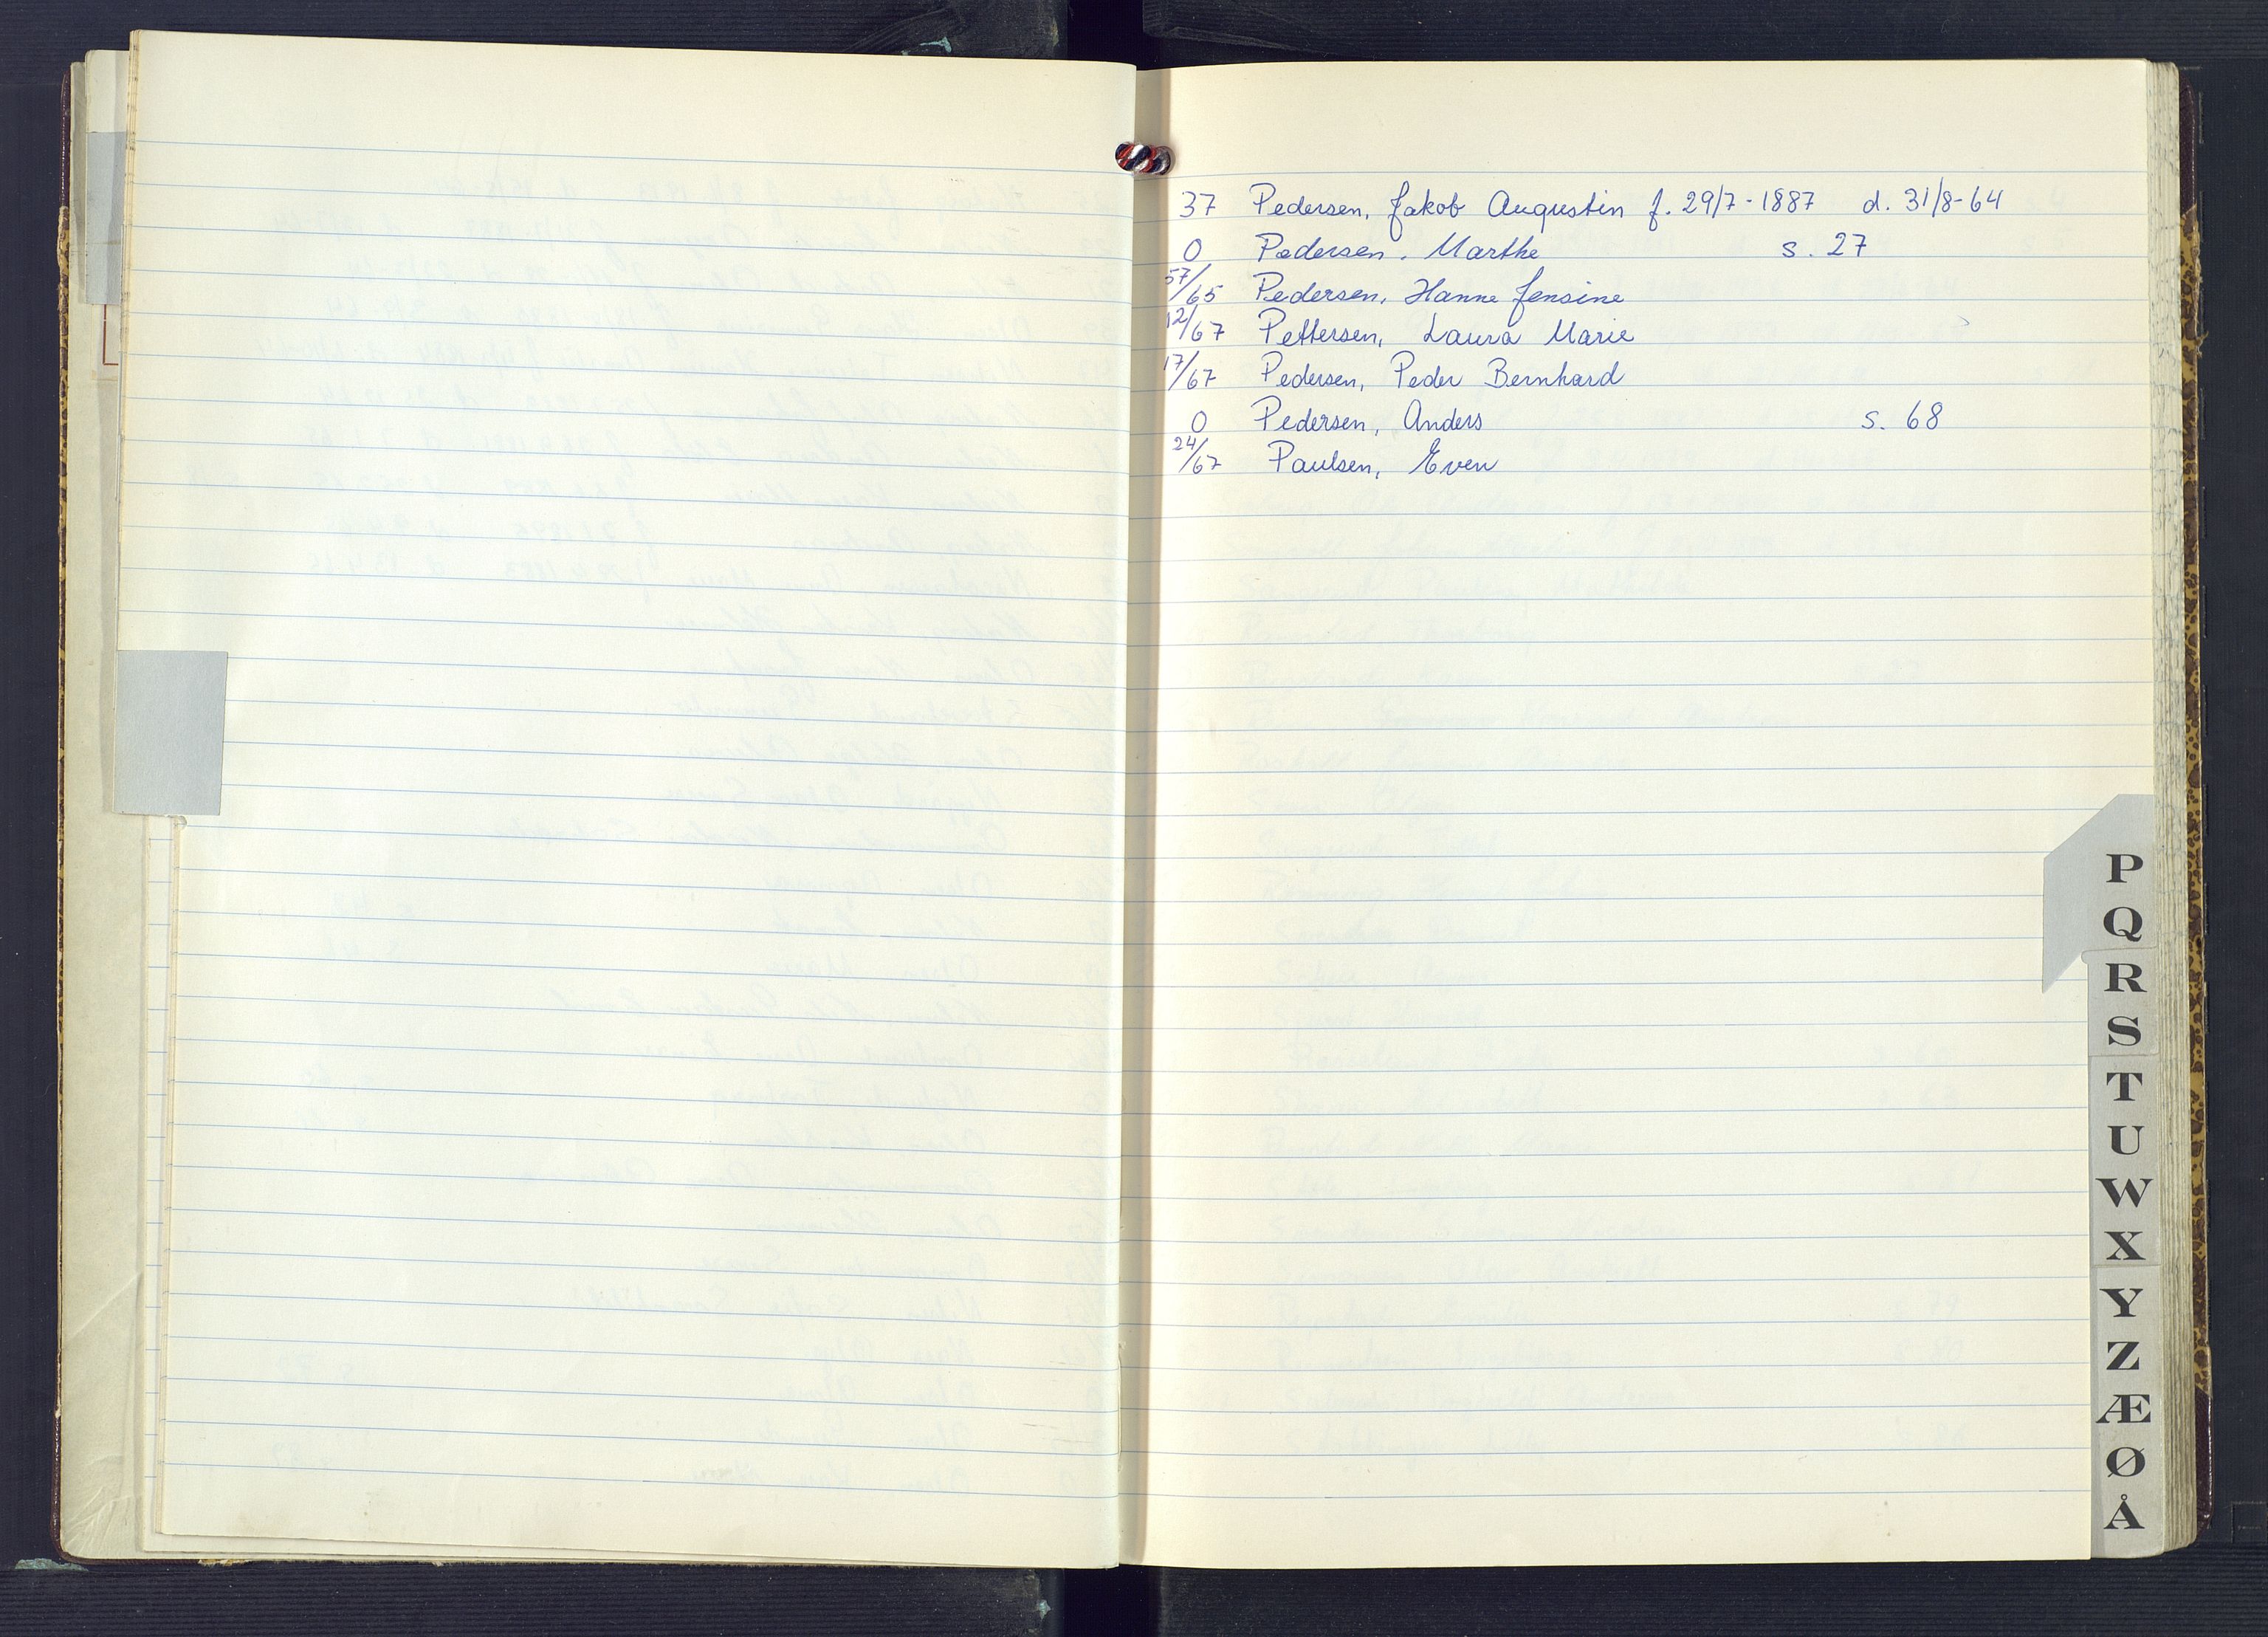 37 Pedersen, Jakob Augustin f. 29/7-1887 d. 31/8-64
0 Pedersen, Marthe s. 27
57/65 Pedersen, Hanne Jensine
12/67 Pettersen, Laura Marie
17/67 Pedersen, Peder Bernhard
0 Pedersen, Anders s. 68
24/67 Paulsen, Even
P
Q
R
S
T
U
W
X
Y
Z
Æ
Ø
Å